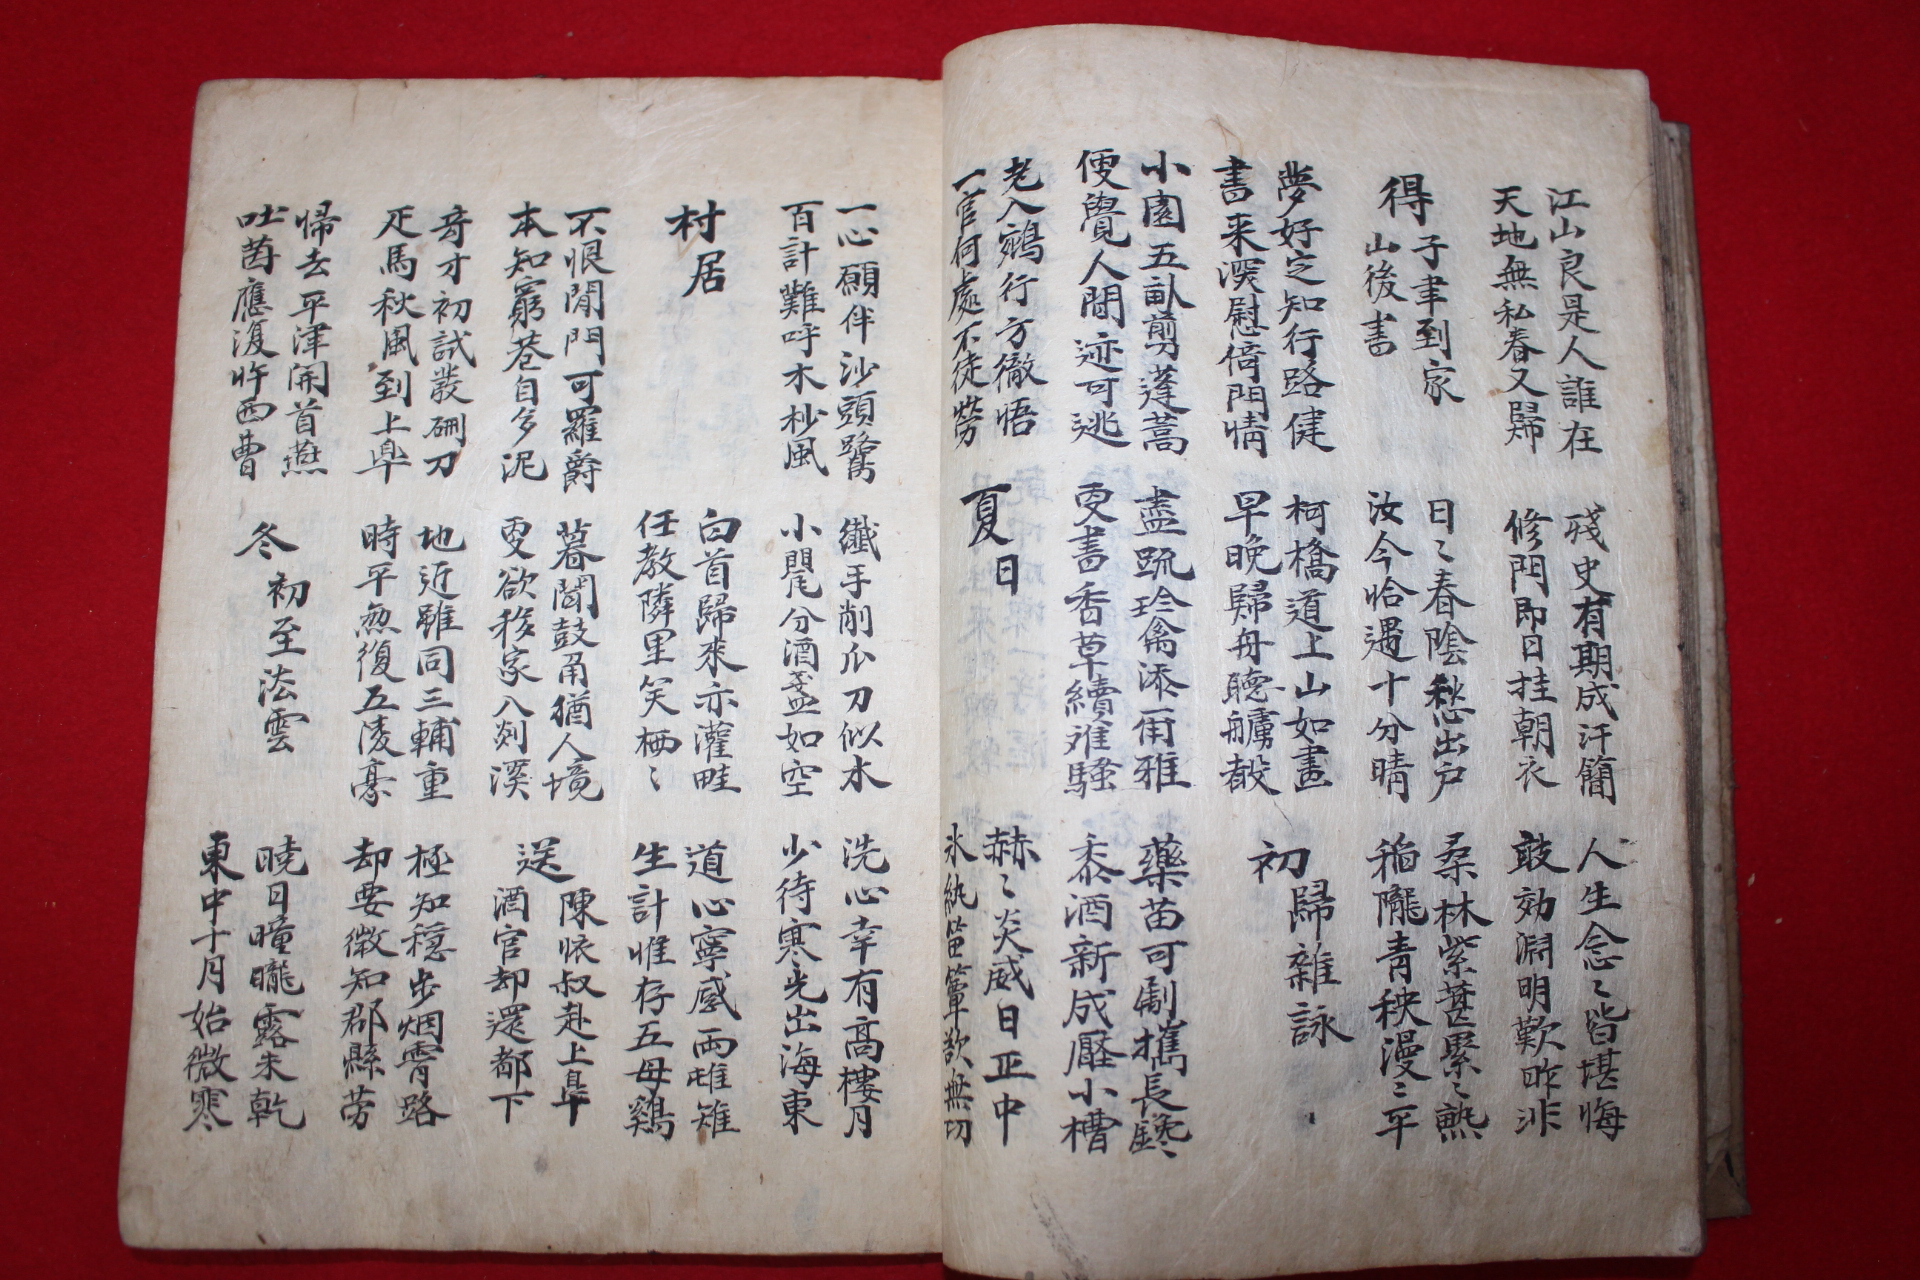 江山良是人誰在
天地無私春又歸
殘史有期成汗簡
修門即日挂朝衣
人生念〻皆堪悔
敢効淵明歎昨非
得子聿到家
山後書
日〻春陰愁出戶
汝今恰遇十分晴
桑林紫葚纍〻熟
稲隴青秧漫〻平
夢好定知行路健
書来深慰倚門情
柯橋道上山如畫
早晩歸舟聴艣聲
初歸雜詠
小園五畝剪蓬蒿
便覺人間迹可逃
盡疏珍禽添爾雅
更書香草續離騷
藥苗可劚攜長鑱
黍酒新成壓小槽
老入鵷行方徹悟
一官何處不徒勞
夏日
赫〻炎威日正中
氷紈笛簟欲無功
一心願伴沙頭鷺
百計難呼木杪風
纖手削瓜刀似水
小甖分酒盞如空
洗心幸有高樓月
少待寒光出海東
村居
白首歸來亦灌畦
任教隣里笑栖〻
道心寧感兩雌雉
生計惟存五母鷄
不恨閒門可羅爵
本知窮巷自多泥
暮聞鼓角猶人境
更欲移家入剡溪
送陳懐叔赴上阜
酒官却還都下
奇才初試發硎刀
疋馬秋風到上阜
地近雖同三輔重
時平無復五陵豪
極知穏步烟霄路
却要微知郡縣勞
帰去平津開首燕
吐茵應復忤西曹
冬初至法雲
曉日曈曨露未乾
東中十月始微寒